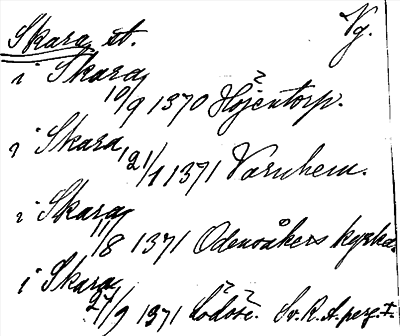 Skara st. Vg.
i Skara
10/9 1370 Höjentorp.
i Skara
21/1 1371 Varnhem.
i Skara
11/8 1371 Odensåkers kyrka.
i Skara
27/9 1371 Lödöse. Sv. R. A. perg. I.